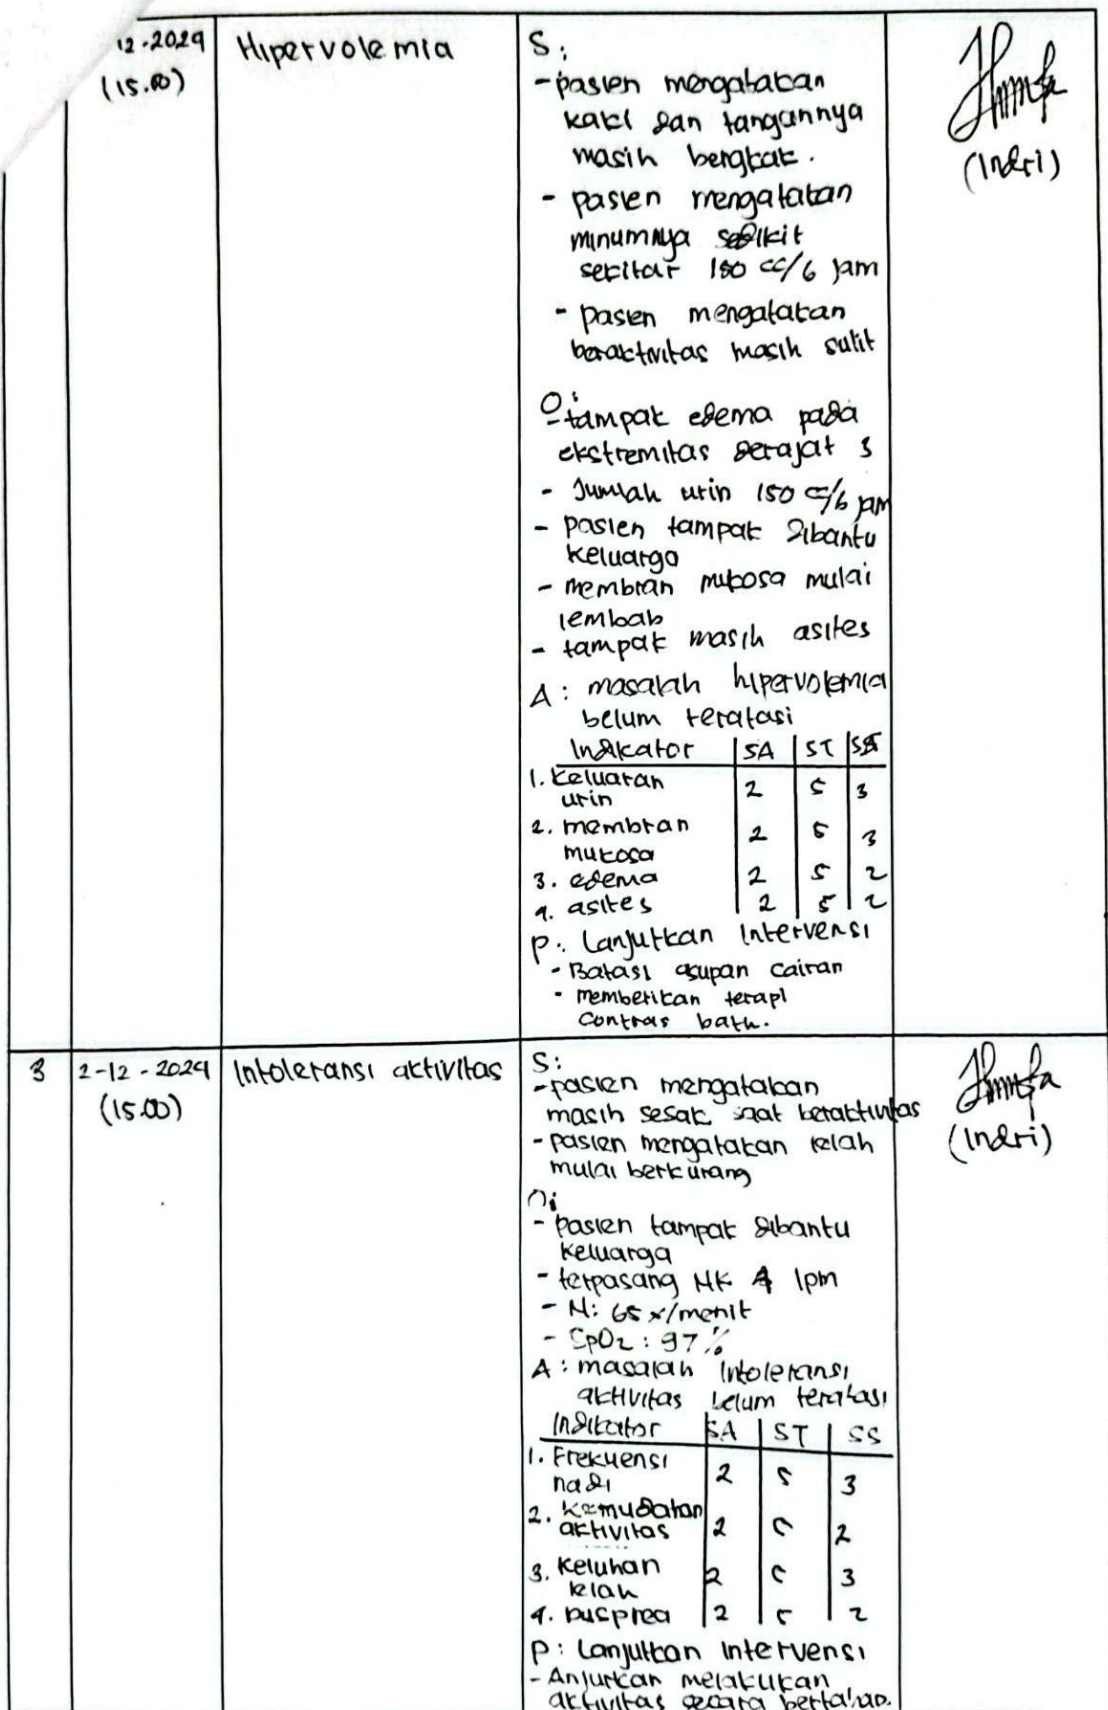 12-2024
(15.00)
Hipervolemia
S:
- pasien mengatakan
kaki dan tangannya
masih bengkak.
- pasien mengatakan
minumnya sedikit
sekitar 150 cc/6 jam
- pasien mengatakan
beraktivitas masih sulit
O:
- tampak edema pada
ekstremitas derajat 3
- Jumlah urin 150 cc/6 jam
- pasien tampak dibantu
keluarga
- membran mukosa mulai
lembab
- tampak masih asites
A: masalah hipervolemia
belum teratasi
Indikator | SA | ST | SS
1. Keluaran
urin 2 5 3
2. membran
mukosa 2 5 3
3. edema 2 5 2
4. asites 2 5 2
P: Lanjutkan intervensi
- Batasi asupan cairan
- memberikan terapi
contras bath.
(Indri)
3
2-12-2024
(15.00)
Intoleransi aktivitas
S:
- pasien mengatakan
masih sesak saat beraktivitas
- pasien mengatakan lelah
mulai berkurang
O:
- pasien tampak dibantu
keluarga
- terpasang NK 4 lpm
- N: 65 x/menit
- SpO2: 97%
A: masalah intoleransi
aktivitas belum teratasi
Indikator | SA | ST | SS
1. Frekuensi
nadi 2 5 3
2. Kemudahan
aktivitas 2 5 2
3. Keluhan
lelah 2 5 3
4. 2 5 2
P: Lanjutkan intervensi
- Anjurkan melakukan
aktivitas secara bertahap.
(Indri)